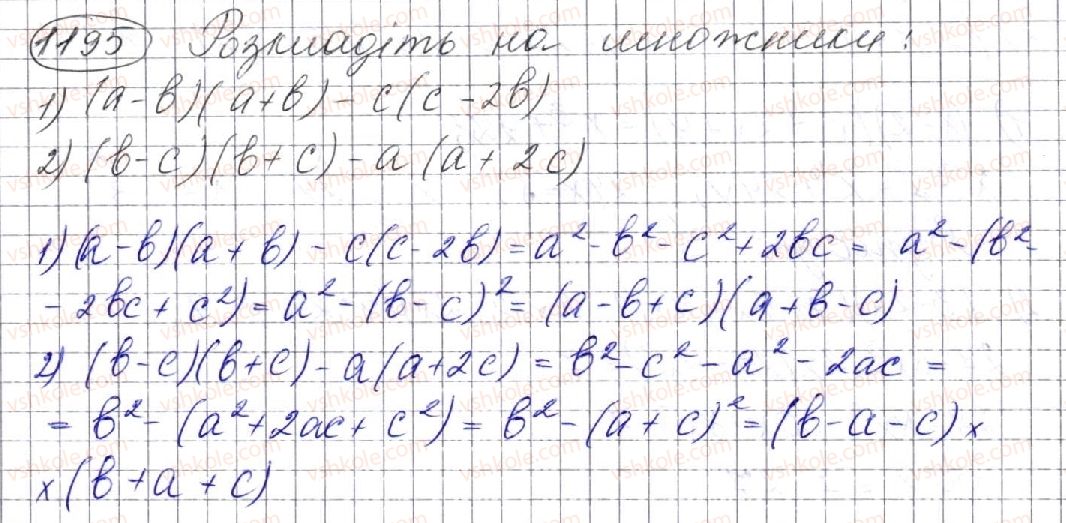 1195 Розкладіть на множники:
1) (a-b)(a+b) - c(c-2b)
2) (b-c)(b+c) - a(a+2c)
1) (a-b)(a+b) - c(c-2b) = a²-b²-c²+2bc = a²-(b²-
-2bc+c²) = a²-(b-c)² = (a-b+c)(a+b-c)
2) (b-c)(b+c) - a(a+2c) = b²-c²-a²-2ac =
= b²-(a²+2ac+c²) = b²-(a+c)² = (b-a-c) x
x (b+a+c)